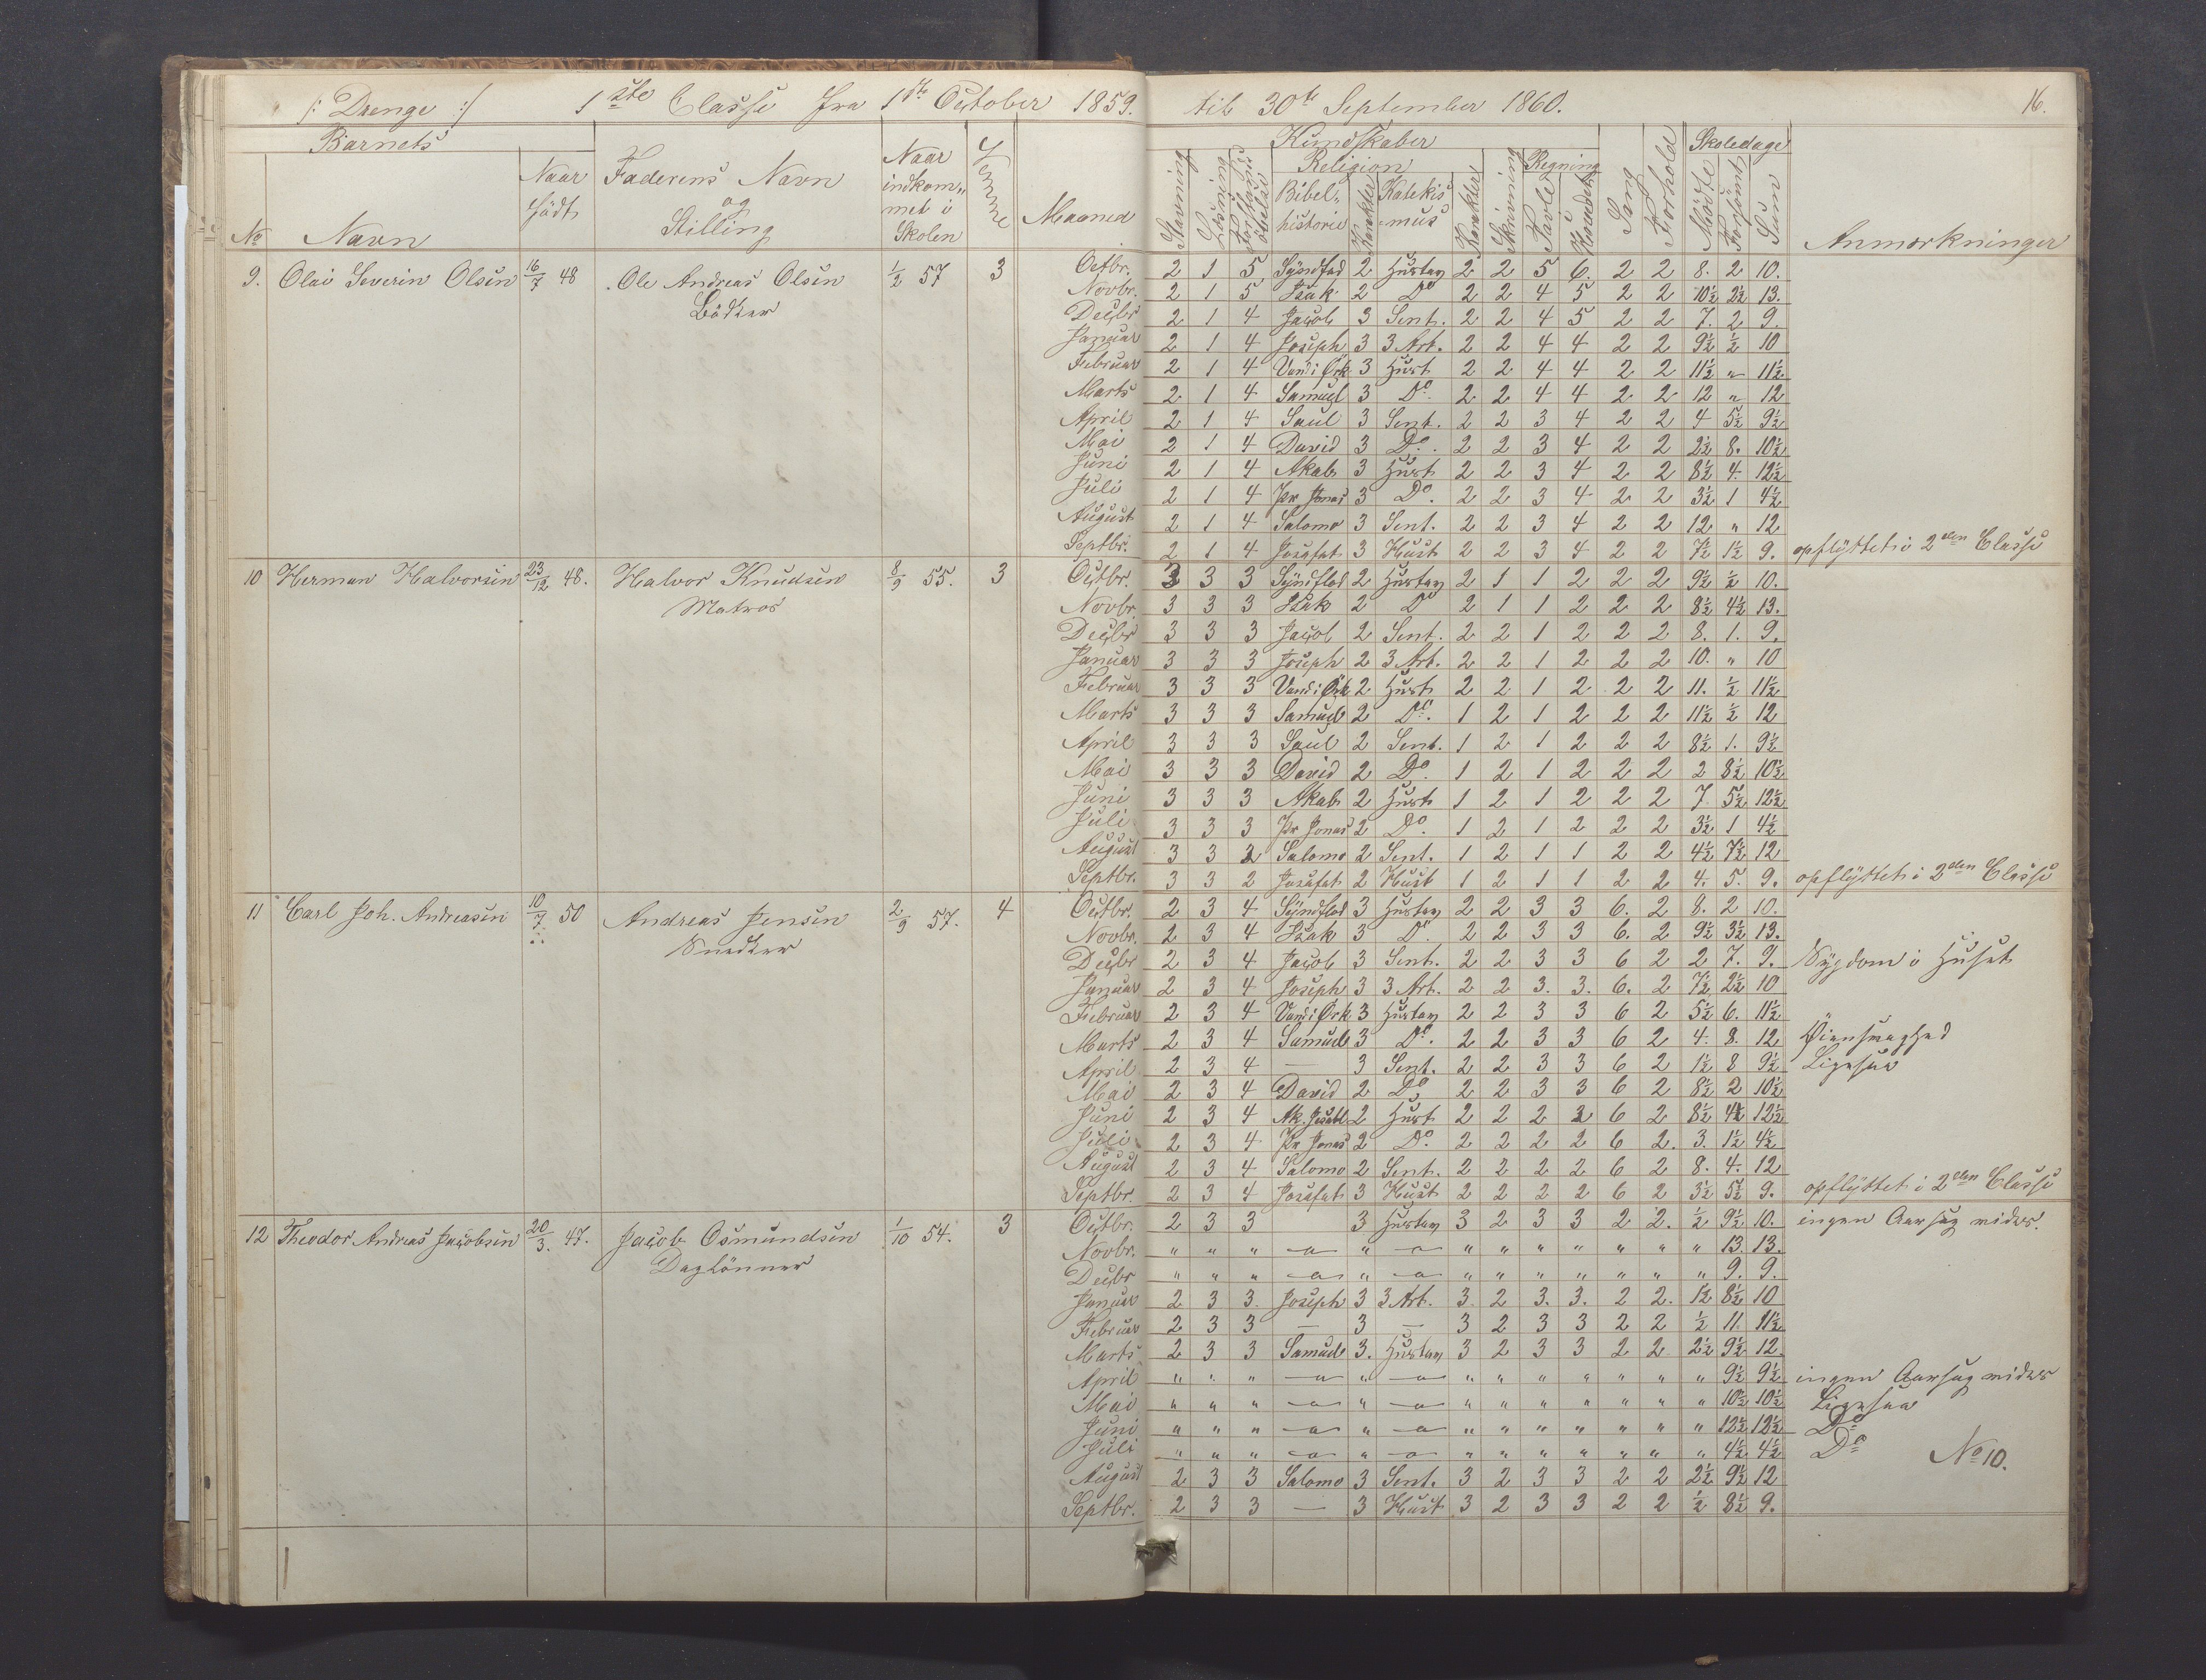 /: Drenge :/ 1ste Classe fra 1ste October 1859. til 30te September 1860. 16.
Barnets
No Navn
Naar född
Faderens Navn
og
Stilling
Naar
indkom„
met i
Skolen
Maaned
Kundskaber
Religion
Stavning
Læsning
Bibel„
historie
Karakter
Katekis
mus
Karakter
Skrivning
Regning
Tavle
Hoved
Sang
Forhold
Skoledage
Mödte
Forsömt
Sum
Anmærkninger
9. Olai Severin Olsen 16/7 48 Ole Andreas Olsen 1/2 57 3
Bödker
Octbr. 2 1 5 Syndflod 2 Hustav 2 2 5 6. 2 2 8. 2 10.
Novbr. 2 1 5 Isak 2 Do 2 2 4 5 2 2 10½ 2½ 13.
Decbr 2 1 4 Jacob 3 Sent. 2 2 4 5 2 2 7. 2 9.
Januar 2 1 4 Joseph 3 3 Art. 2 2 4 4 2 2 9½ ½ 10
Februar 2 1 4 Vand i Örk 3 Hust 2 2 4 4 2 2 11½ „ 11½
Marts 2 1 4 Samuel 3 Do. 2 2 4 4 2 2 12 „ 12
April 2 1 4 Saul 3 Sent. 2 2 3 4 2 2 4 5½ 9½
Mai 2 1 4 David 3 Do. 2 2 3 4 2 2 2½ 8. 10½
Juni 2 1 4 Akab 3 Hust 2 2 3 4 2 2 8½ 4. 12½
Juli 2 1 4 Pr Jonas 3 Do. 2 2 3 4 2 2 3½ 1 4½
August 2 1 4 Salomo 3 Sent. 2 2 3 4 2 2 12 „ 12
Septbr. 2 1 4 Josafat 3 Hust 2 2 3 4 2 2 7½ 1½ 9. opflyttet i 2den Classe
10 Herman Halvorsen 23/12 48. Halvor Knudsen 8/9 55. 3
Matros
Octbr. 3 3 3 Syndflod 2 Hustav 2 1 1 2 2 2 9½ ½ 10.
Novbr 3 3 3 Isak 2 Do 2 1 1 2 2 2 8½ 4½ 13.
Decbr 3 3 3 Jacob 2 Sent. 2 2 1 2 2 2 8. 1. 9.
Januar 3 3 3 Joseph 2 3 Art. 2 2 1 2 2 2 10. „ 10
Februar 3 3 3 Vand i Örk 2 Hust 2 2 1 2 2 2 11. ½ 11½
Marts 3 3 3 Samuel 2 Do. 1 2 1 2 2 2 11½ ½ 12
April 3 3 3 Saul 2 Sent. 1 2 1 2 2 2 8½ 1. 9½
Mai 3 3 3 David 2 Do. 1 2 1 2 2 2 2 8½ 10½
Juni 3 3 3 Akab 2 Hust 1 2 1 2 2 2 7. 5½ 12½
Juli 3 3 3 Pr Jonas 2 Do. 1 2 1 2 2 2 3½ 1 4½
August 3 3 2 Salomo 2 Sent. 1 2 1 1 2 2 4½ 7½ 12
Septbr. 3 3 2 Josafat 2 Hust 1 2 1 1 2 2 4. 5. 9. opflyttet i 2den Classe
11 Carl Joh. Andreasen 10/7 50 Andreas Jensen 2/9 57. 4
Snedker
Octbr. 2 3 4 Syndflod 3 Hustav 2 2 3 3 6. 2 8. 2 10.
Novbr. 2 3 4 Isak 3 Do 2 2 3 3 6. 2 9½ 3½ 13.
Decbr 2 3 4 Jacob 3 Sent. 2 2 3 3 6 2 2 7. 9. Sygdom i Huset
Januar 2 3 4 Joseph 3 3 Art. 2 2 3. 3. 6. 2 7½ 2½ 10
Februar 2 3 4 Vand i Örk 3 Hustav 2 2 3 3 6 2 5½ 6. 11½
Marts 2 3 4 Samuel 3 Do. 2 2 3 3 6 2 4. 8. 12 Öiensvaghed
April 2 3 4 — 3 Sent. 2 2 3 3 6 2 1½ 8 9½ Ligesaa
Mai 2 3 4 David 2 Do 2 2 3 3 6 2 8½ 2 10½
Juni 2 3 4 Ak. Jesabel 2 Hust 2 2 2 2 6 2 8½ 4 12½
Juli 2 3 4 Pr Jonas 2 Do. 2 2 2 2 6 2. 3. 1½ 4½
August 2 3 4 Salomo 2 Sent. 2 2 2 2 6 2 8. 4. 12
Septbr. 2 3 4 Josafat 3 Hust 2 2 2 2 6 2 3½ 5½ 9. opflyttet i 2den Classe
12 Theodor Andreas Jacobsen 20/3. 47. Jacob Osmundsen 1/10 54. 3
Daglönner
Octbr. 2 3 3 3 Hustav 3 2 3 3 2 2. ½ 9½ 10. ingen Aarsag vides.
Novbr. „ „ „ —„— „ —„— „ „ „ „ „ „ „ 13. 13.
Decbr „ „ „ —„— „ —„— „ „ „ „ „ „ „ 9. 9.
Januar 2 3 3. Joseph 3 3 Art. 3. 2 3. 3. 2 2. 1½ 8½ 10
Februar 2 3 3 — 3 — 3 2 3 3 2 2 ½ 11. 11½
Marts 2 3 3 Samuel 3. Hustav 3 2 3 3 2 2 2½ 9½ 12.
April „ „ „ —„— „ —„— „ „ „ „ „ „ „ 9½ 9½ ingen Aarsag vides
Mai „ „ „ —„— „ —„— „ „ „ „ „ „ „ 10½ 10½ Ligesaa
Juni „ „ „ —„— „ —„— „ „ „ „ „ „ „ 12½ 12½ Do
Juli „ „ „ —„— „ —„— „ „ „ „ „ „ „ 4½ 4½ Do No 10.
August 2 3 3 Salomo 3 Sent. 3 2 3 3 2 2 2½ 9½ 12
Septbr. 2 3 3 — 3 Hust 3 2 3 3 2 2 ½ 8½ 9.